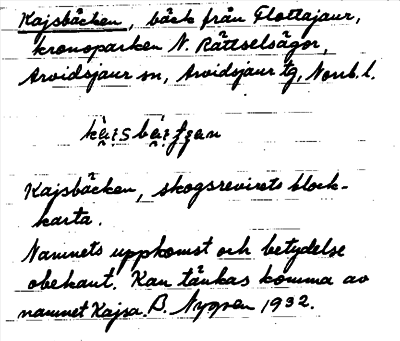 Kajsbäcken, bäck från Flottajaur,
kronoparken N. Rättselsågor,
Arvidsjaur sn, Arvidsjaur tg, Norrb. l.
Kajsbäcken, skogsrevirets block-
karta.
Namnets uppkomst och betydelse
obekant. Kan tänkas komma av
namnet Kajsa. B. Nygren 1932.